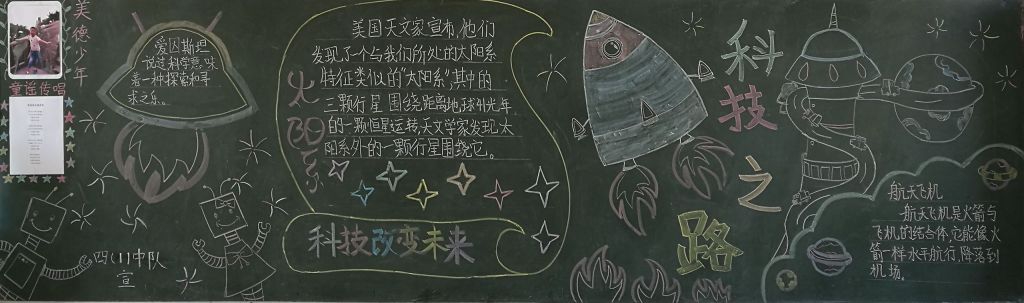 美德少年
童谣传唱
爱因斯坦
说过科学意味
着一种探索和寻
求之乐。
四(1)中队
宣
火阳系
美国天文家宣布,他们
发现了个与我们所处的太阳系
特征类似的"太阳系",其中的
三颗行星围绕距离地球41光年
的一颗恒星运转,天文学家发现太
阳系外的一颗行星围绕它。
科技改变未来
科技之路
航天飞机
航天飞机是火箭与
飞机的结合体,它能像火
箭一样水平航行,降落到
机场。